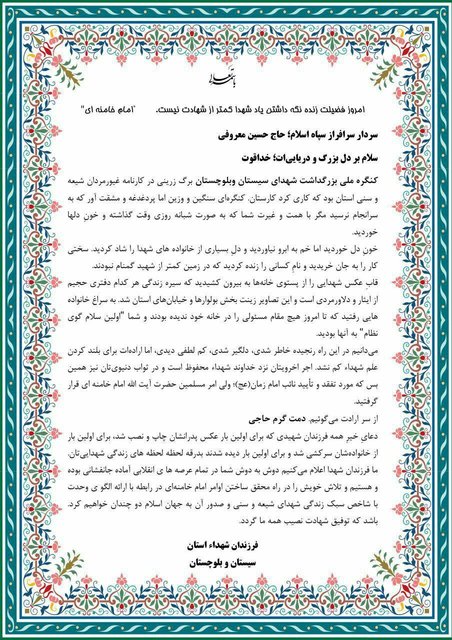 باسمه تعالی
امروز فضیلت زنده نگه داشتن یاد شهدا کمتر از شهادت نیست. "امام خامنه ای"
سردار سرافراز سپاه اسلام؛ حاج حسین معروفی
سلام بر دل بزرگ و دریایی‌ات؛ خداقوت
کنگره ملی بزرگداشت شهدای سیستان وبلوچستان برگ زرینی در کارنامه غیورمردان شیعه
و سنی استان بود که کاری کرد کارستان. کنگره‌ای سنگین و وزین اما پردغدغه و مشقت آور که به
سرانجام نرسید مگر با همت و غیرت شما که به صورت شبانه روزی وقت گذاشته و خونِ دلها
خوردید.
خونِ دل خوردید اما خم به ابرو نیاوردید و دلِ بسیاری از خانواده های شهدا را شاد کردید. سختی
کار را به جان خریدید و نامِ کسانی را زنده کردید که در زمین کمتر از شهید گمنام نبودند.
قابِ عکس شهدایی را از پستوی خانه‌ها به بیرون کشیدید که سیره زندگی هر کدام دفتری حجیم
از ایثار و دلاورمردی است و این تصاویر زینت بخش بولوارها و خیابان‌های استان شد. به سراغ خانواده
هایی رفتید که تا امروز هیچ مقام مسئولی را در خانه خود ندیده بودند و شما "اولین سلام گوی
نظام" به آنها بودید.
می‌دانیم در این راه رنجیده خاطر شدی، دلگیر شدی، کم لطفی دیدی، اما اراده‌ات برای بلند کردن
علم شهداء کم نشد. اجر اخرویتان نزد خداوند شهداء محفوظ است و در ثواب دنیوی‌تان نیز همین
بس که مورد تفقد و تأیید نائب امام زمان(عج)؛ ولی امر مسلمین حضرت آیت الله امام خامنه ای قرار
گرفتید.
از سر ارادت می‌گوئیم. دمت گرم حاجی
دعای خیرِ همه فرزندان شهیدی که برای اولین بار عکس پدرانشان چاپ و نصب شد، برای اولین بار
از خانواده‌شان سرکشی شد و برای اولین بار دیده شدند بدرقه لحظه لحظه های زندگی شهدایی‌تان.
ما فرزندان شهدا اعلام می‌کنیم دوش به دوش شما در تمام عرصه ها ی انقلابی آماده جانفشانی بوده
و هستیم و تلاش خویش را در راه محقق ساختن اوامر امام خامنه‌ای در رابطه با ارائه الگو ی وحدت
با شاخص سبک زندگی شهدای شیعه و سنی و صدور آن به جهان اسلام دو چندان خواهیم کرد.
باشد که توفیق شهادت نصیب همه ما گردد.
فرزندان شهداء استان
سیستان و بلوچستان